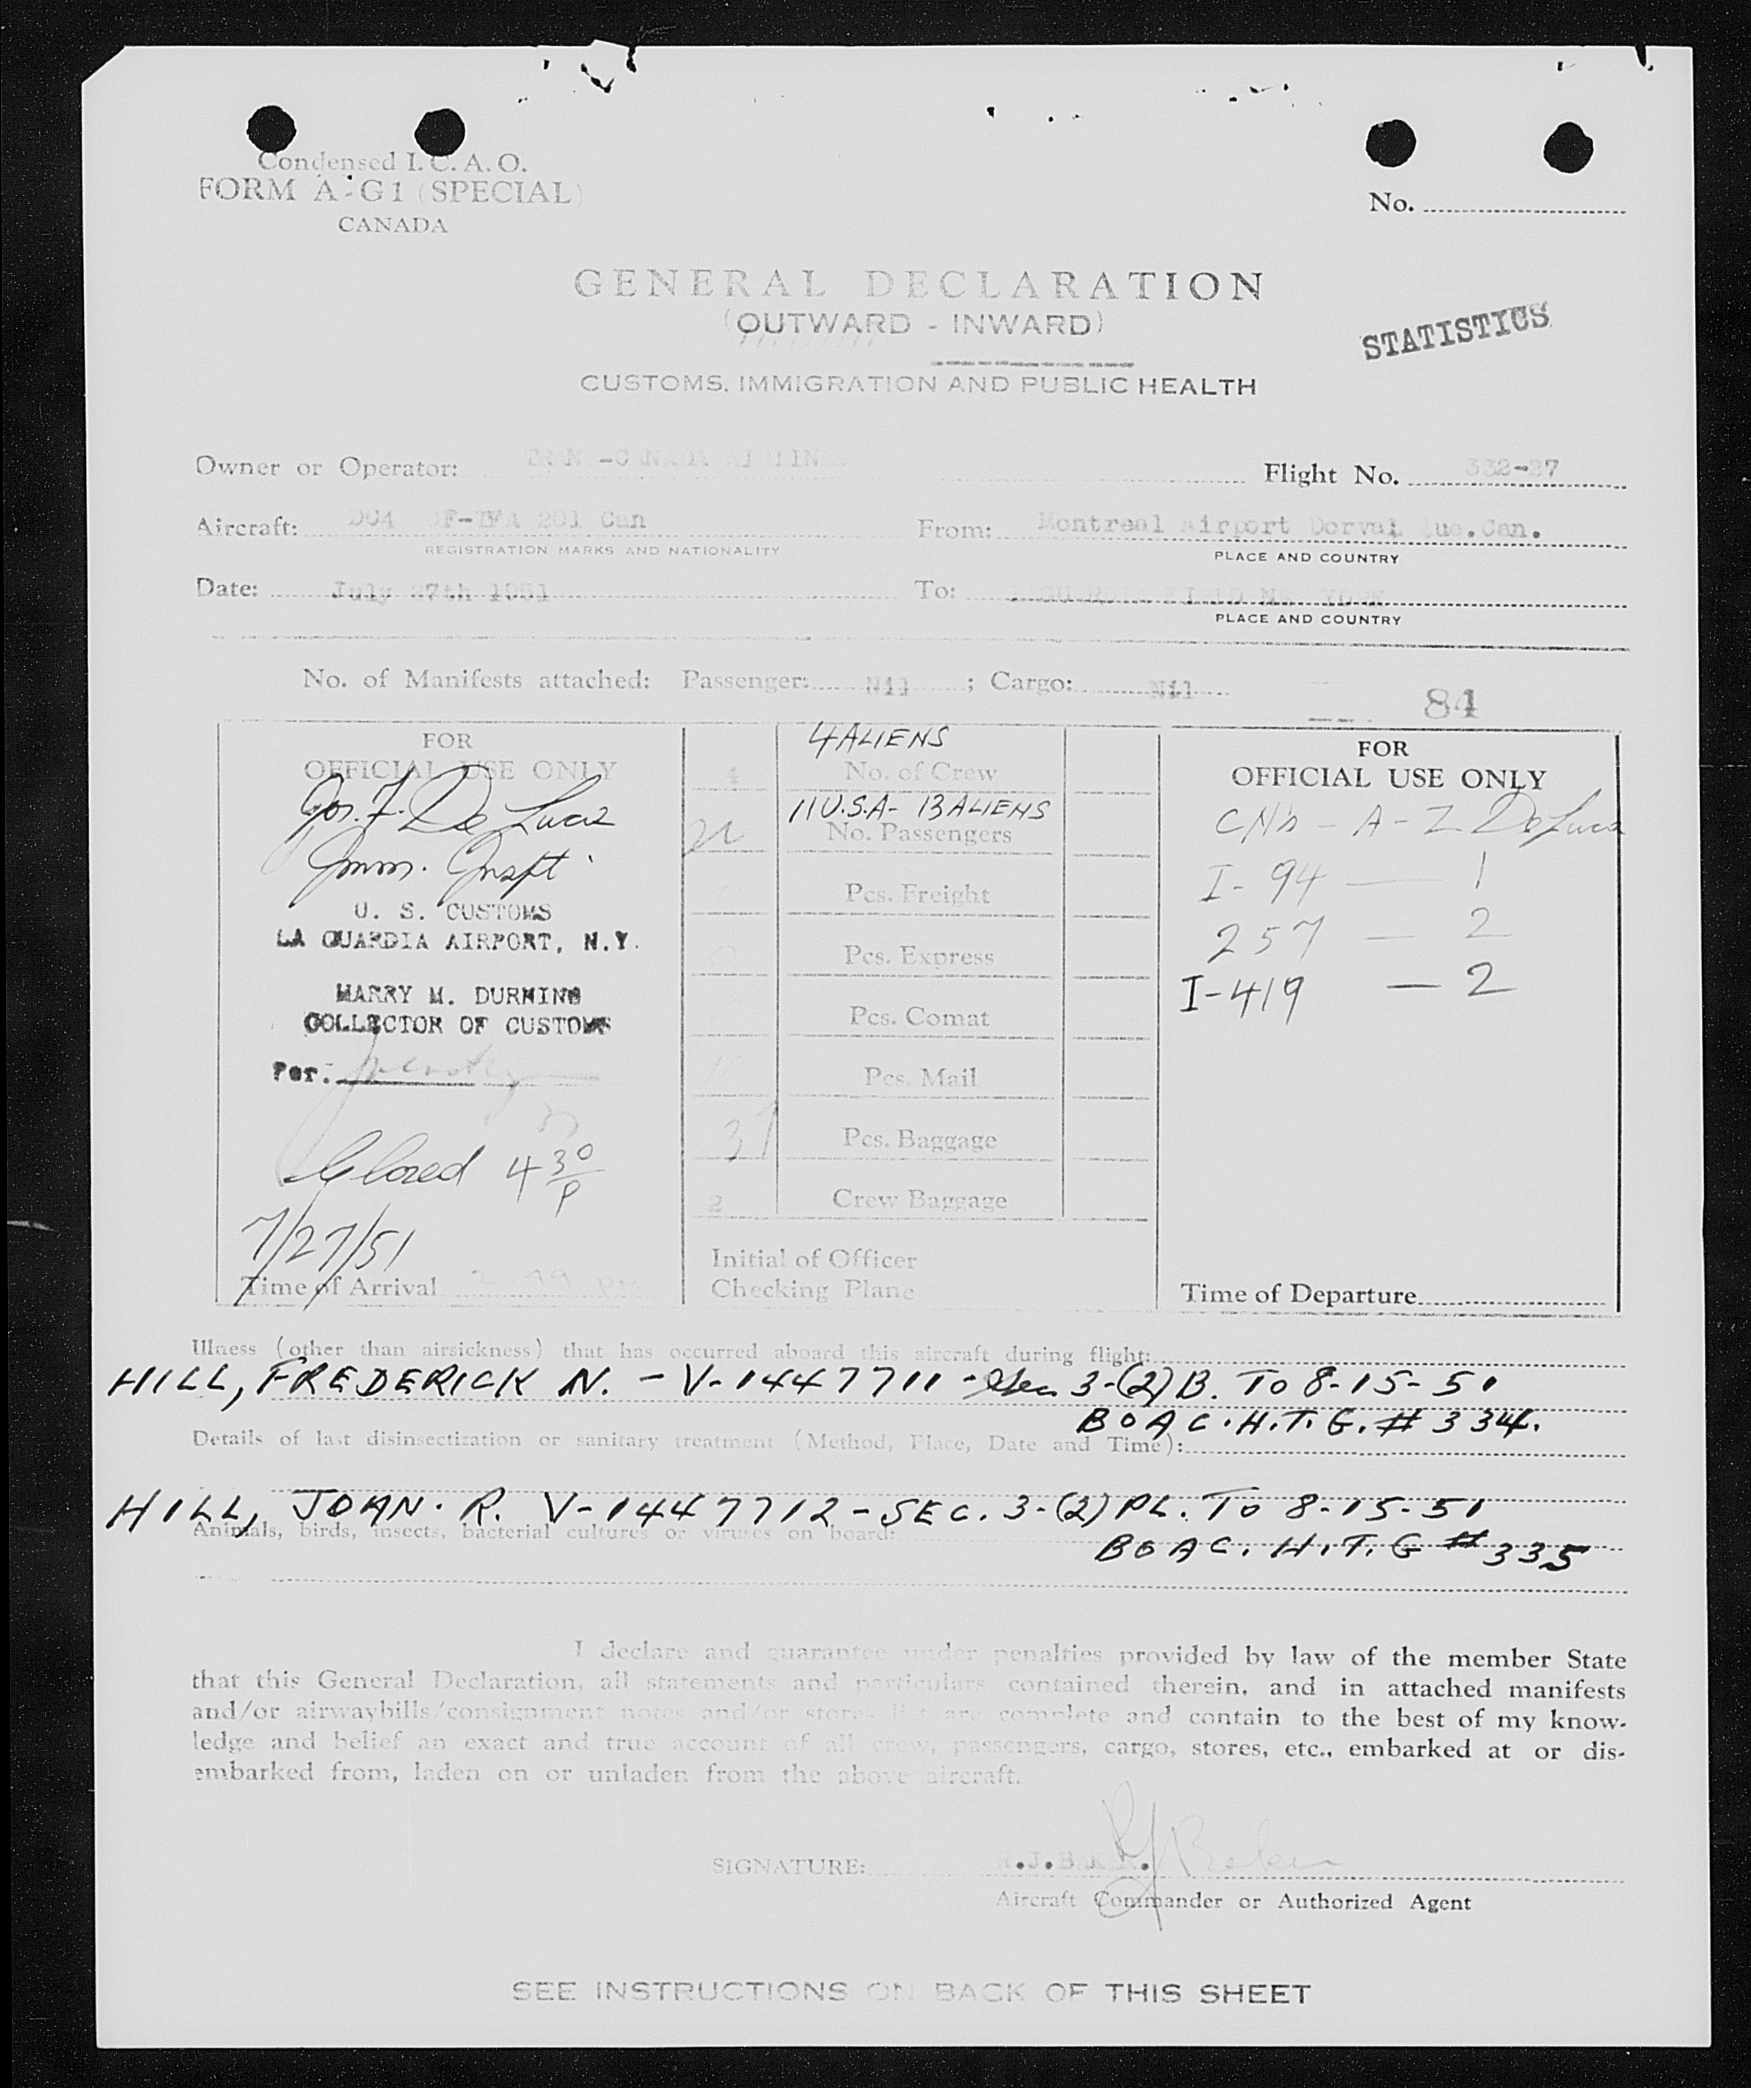 Condensed I.C.A.O.
FORM A-G1 (SPECIAL)
CANADA
No.
GENERAL DECLARATION
(OUTWARD - INWARD)
STATISTICS
CUSTOMS, IMMIGRATION AND PUBLIC HEALTH
Owner or Operator: TRANS-CANADA AIRLINES Flight No. 332-27
Aircraft: DC4 CF-TFA 201 Can From: Montreal Airport Dorval Que.Can.
REGISTRATION MARKS AND NATIONALITY PLACE AND COUNTRY
Date: July 27th 1951 To: YORK
PLACE AND COUNTRY
No. of Manifests attached: Passenger: Nil ; Cargo: Nil
84
FOR
OFFICIAL USE ONLY
Jos. F. De Luca
Imm. Inspt.
U. S. CUSTOMS
LA GUARDIA AIRPORT, N.Y.
HARRY M. DURNING
COLLECTOR OF CUSTOMS
Per:
Closed 4 30 P
7/27/51
Time of Arrival
4 ALIENS
4 No. of Crew
11 U.S.A- 13 ALIENS
No. Passengers
Pcs. Freight
Pcs. Express
Pcs. Comat
Pcs. Mail
37 Pcs. Baggage
2 Crew Baggage
Initial of Officer
Checking Plane
FOR
OFFICIAL USE ONLY
A - Z DeLuca
I-94 — 1
257 — 2
I-419 — 2
Time of Departure
Illness (other than airsickness) that has occurred aboard this aircraft during flight:
HILL, FREDERICK N. - V-1447711 - 3-(2) B. TO 8-15-51
BOAC. H.T.G. # 334.
Details of last disinsectization or sanitary treatment (Method, Place, Date and Time):
HILL, JOAN. R. V-1447712 - SEC. 3-(2) PL. TO 8-15-51
Animals, birds, insects, bacterial cultures or viruses on board:
BOAC. H.T.G # 335
I declare and guarantee under penalties provided by law of the member State
that this General Declaration, all statements and particulars contained therein, and in attached manifests
and/or airwaybills/consignment notes and/or stores list are complete and contain to the best of my know-
ledge and belief an exact and true account of all crew, passengers, cargo, stores, etc., embarked at or dis-
embarked from, laden on or unladen from the above aircraft.
SIGNATURE: Baker
Aircraft Commander or Authorized Agent
SEE INSTRUCTIONS ON BACK OF THIS SHEET